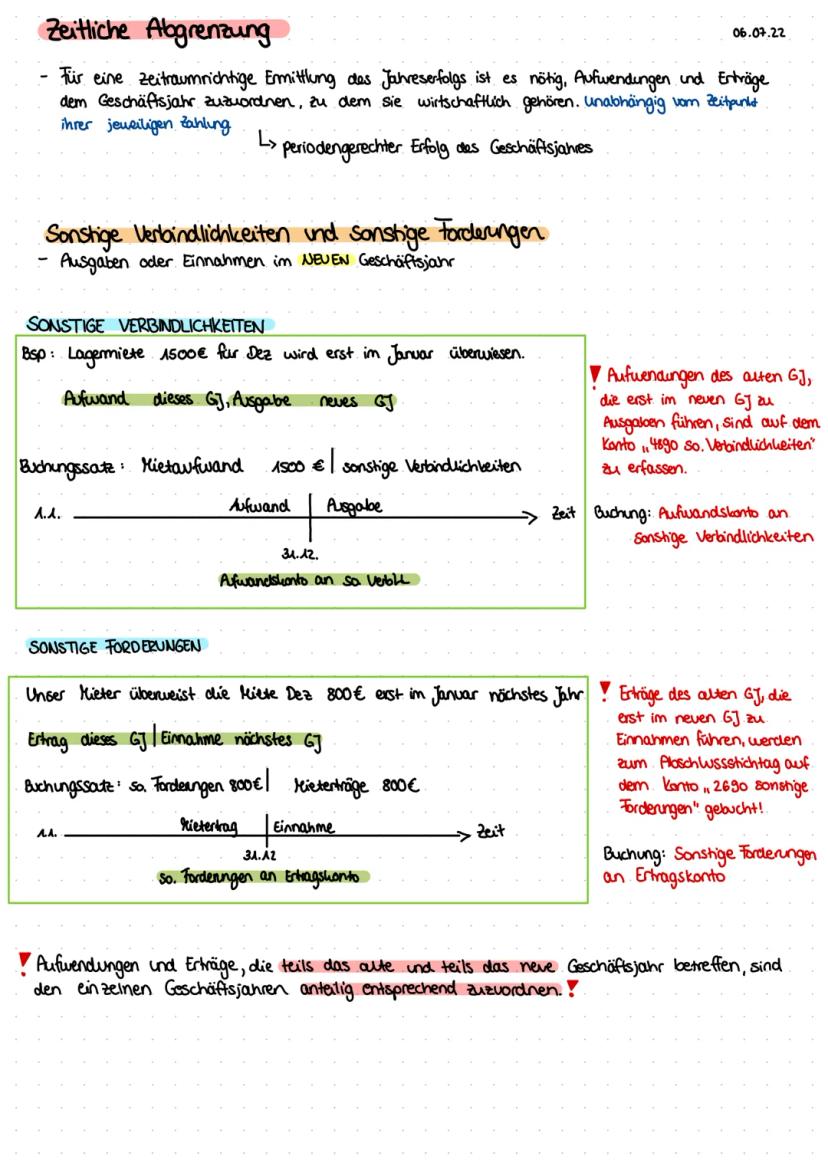 Zeitliche Abgrenzung
06.07.22
- Für eine zeitraumrichtige Ermittlung des Jahreserfolgs ist es nötig, Aufwendungen und Erträge
dem Geschäftsjahr zuzuordnen, zu dem sie wirtschaftlich gehören. unabhängig vom Zeitpunkt
ihrer jeweiligen Zahlung
↳ periodengerechter Erfolg des Geschäftsjahres
Sonstige Verbindlichkeiten und sonstige Forderungen
- Ausgaben oder Einnahmen im NEUEN Geschäftsjahr
SONSTIGE VERBINDLICHKEITEN
Bsp: Lagermiete 1500€ für Dez wird erst im Januar überwiesen.
Aufwand dieses GJ, Ausgabe neues GJ
Buchungssatz: Mietaufwand 1500 € | sonstige Verbindlichkeiten
Aufwand | Ausgabe
1.1. Zeit
31.12.
Afwandskonto an so. Verbll
! Aufwendungen des alten GJ,
die erst im neuen GJ zu
Ausgaben führen, sind auf dem
Konto „4890 so. Verbindlichkeiten"
zu erfassen.
Buchung: Aufwandskonto an
sonstige Verbindlichkeiten
SONSTIGE FORDERUNGEN
Unser Mieter überweist die Miete Dez 800€ erst im Januar nächstes Jahr
Ertrag dieses GJ | Einnahme nächstes GJ
Buchungssatz: so. Forderungen 800€ | Mieterträge 800€
Mietertrag | Einnahme
1.1. Zeit
31.12
so. Forderungen an Ertragskonto
! Erträge des alten GJ, die
erst im neuen GJ zu
Einnahmen führen, werden
zum Abschlussstichtag auf
dem Konto „2690 sonstige
Forderungen" gebucht!
Buchung: Sonstige Forderungen
an Ertragskonto
! Aufwendungen und Erträge, die teils das alte und teils das neue Geschäftsjahr betreffen, sind
den einzelnen Geschäftsjahren anteilig entsprechend zuzuordnen. !